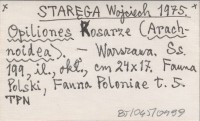 STAREGA Wojciech 1975.
Opiliones Kosarze (Arach-
noidea). - Warszawa. Ss.
199, il., okł., cm 24x17. Fauna
Polski, Fauna Poloniae t. 5.
TPN